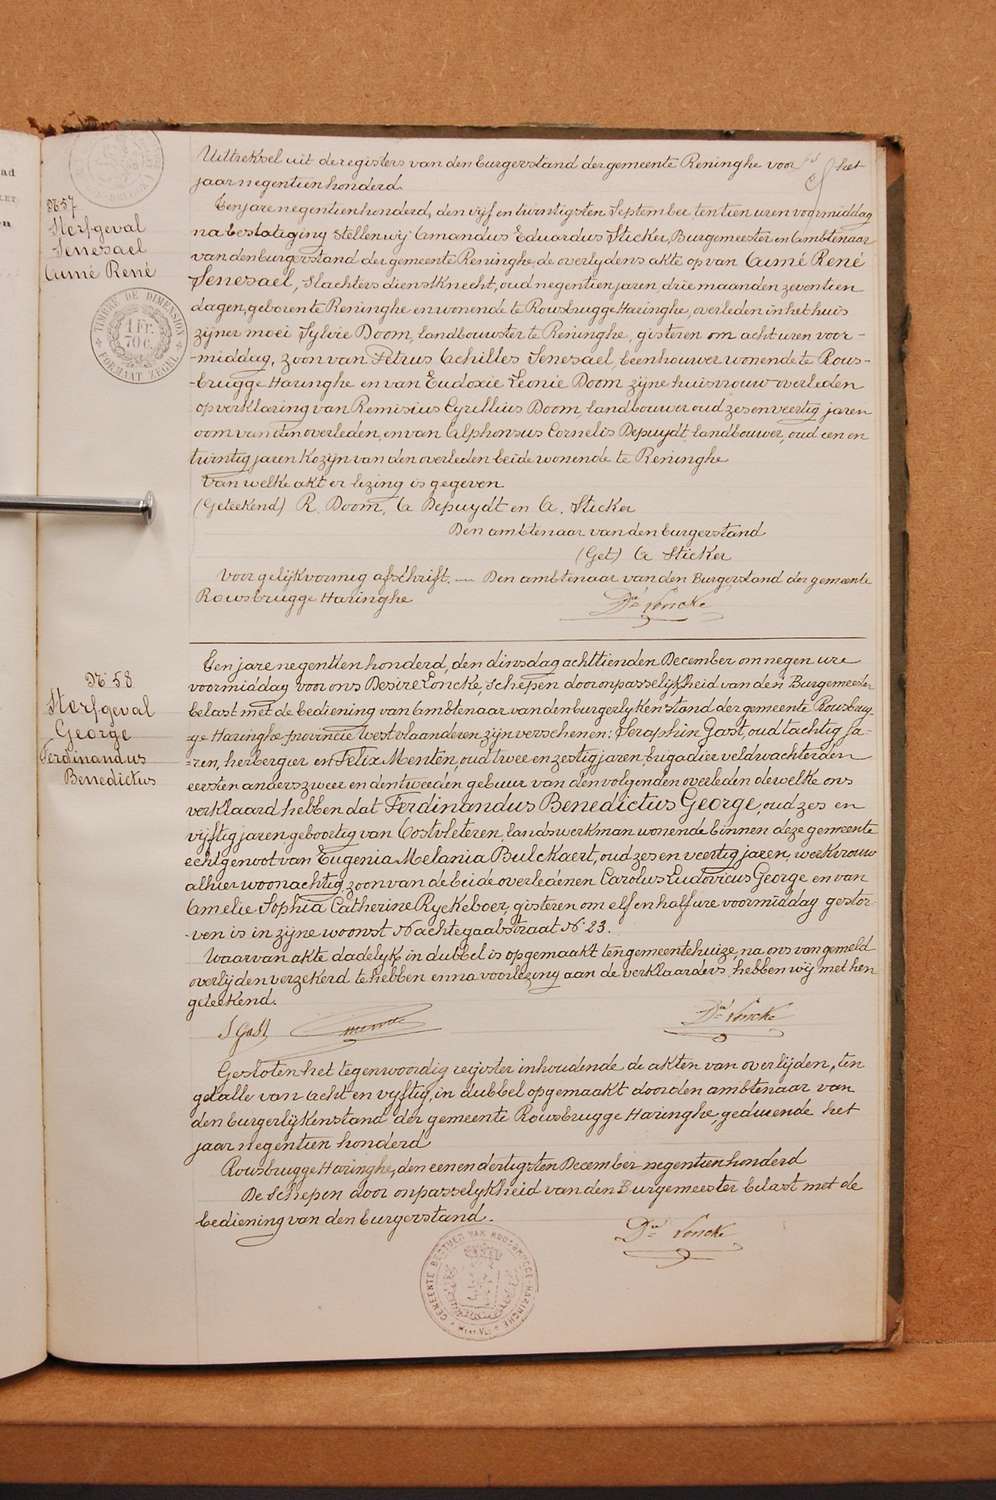 Uittreksel uit de registers van den burgerstand der gemeente Reninghe voor het
jaar negentien honderd.
Nr 57
Sterfgeval
Senesael
Cumé René
Ten jare negentien honderd, den vijf en twintigsten September ten tien uren voormiddag
na bestatiging stellen wij Amandus Eduardus Sticker, Burgemeester en Ambtenaar
van den burgerstand der gemeente Reninghe, de overlijdens akte op van Cumé René
Senesael, Slachters dienstknecht, oud negentien jaren, drie maanden zeventien
dagen, geboren te Reninghe en wonende te Rousbrugge Haringhe, overleden in het huis
zijner moei Sylvie Doom, landbouwster te Reninghe, gisteren om acht uren voor-
-middag, zoon van Petrus Achilles Senesael, beenhouwer wonende te Rous-
-brugge Haringhe en van Eudoxie Leonie Doom zijne huisvrouw overleden
op verklaring van Remisius Cyrillius Doom, landbouwer oud zes en veertig jaren
oom van den overleden, en van Alphonsus Cornelis Depuydt landbouwer, oud een en
twintig jaren Kozijn van den overleden beide wonende te Reninghe
Van welke akt er lezing is gegeven
(Geteekend) R. Doom, A Depuydt en A. Sticker
Den ambtenaar van den burgerstand
(Get) A Sticker
Voor gelijkvormig afschrift. — Den ambtenaar van den Burgerstand der gemeente
Rousbrugge Haringhe
Dré Loncke
TIMBRE DE DIMENSION
1 Fr.
70 c.
FORMAAT ZEGEL
Nr 58
Sterfgeval
George
Ferdinandus
Benedictus
Ten jare negentien honderd, den dinsdag achttienden December om negen ure
voormiddag voor ons Desiré Loncke, schepen door onpasselijkheid van den Burgemeester
belast met de bediening van Ambtenaar van den burgerlyken stand der gemeente Rousbrug-
ge Haringhe provincie Westvlaanderen zijn verschenen: Seraphin Gast, oud tachtig ja-
-ren, herbergier en Felix Menten, oud twee en zestig jaren, brigadier veldwachter den
eersten anderszweer en den tweeden gebuur van den volgenden overleden dewelke ons
verklaard hebben dat Ferdinandus Benedictus George, oud zes en
vijftig jaren geboortig van Oostvleteren, landswerkman wonende binnen deze gemeente
echtgenoot van Eugenia Melania Bulckaert, oud zes en veertig jaren, werkvrouw
alhier woonachtig, zoon van de beide overledenen Carolus Ludovicus George en van
Amelie Sophia Catherine Ryckeboer, gisteren om elf en half ure voormiddag gestor-
-ven is in zijne woonst Nachtegaalstraat Nr 23.
Waarvan akte dadelyk in dubbel is opgemaakt ten gemeentehuize, na ons van gemeld
overlijden verzekerd te hebben en na voorlezing aan de verklaarders, hebben wij met hen
geteekend.
S Gast
Menten
Dré Loncke
Gesloten het tegenwoordig register inhoudende de akten van overlijden, ten
getalle van acht en vijftig, in dubbel opgemaakt door den ambtenaar van
den burgerlijken stand der gemeente Rousbrugge Haringhe, gedurende het
jaar negentien honderd
Rousbrugge Haringhe, den een en dertigsten December negentienhonderd
De Schepen door onpasselykheid van den Burgemeester belast met de
bediening van den burgerstand.
Dré Loncke
GEMEENTE BESTUUR VAN ROUSBRUGGE-HARINGHE
West-Vl.